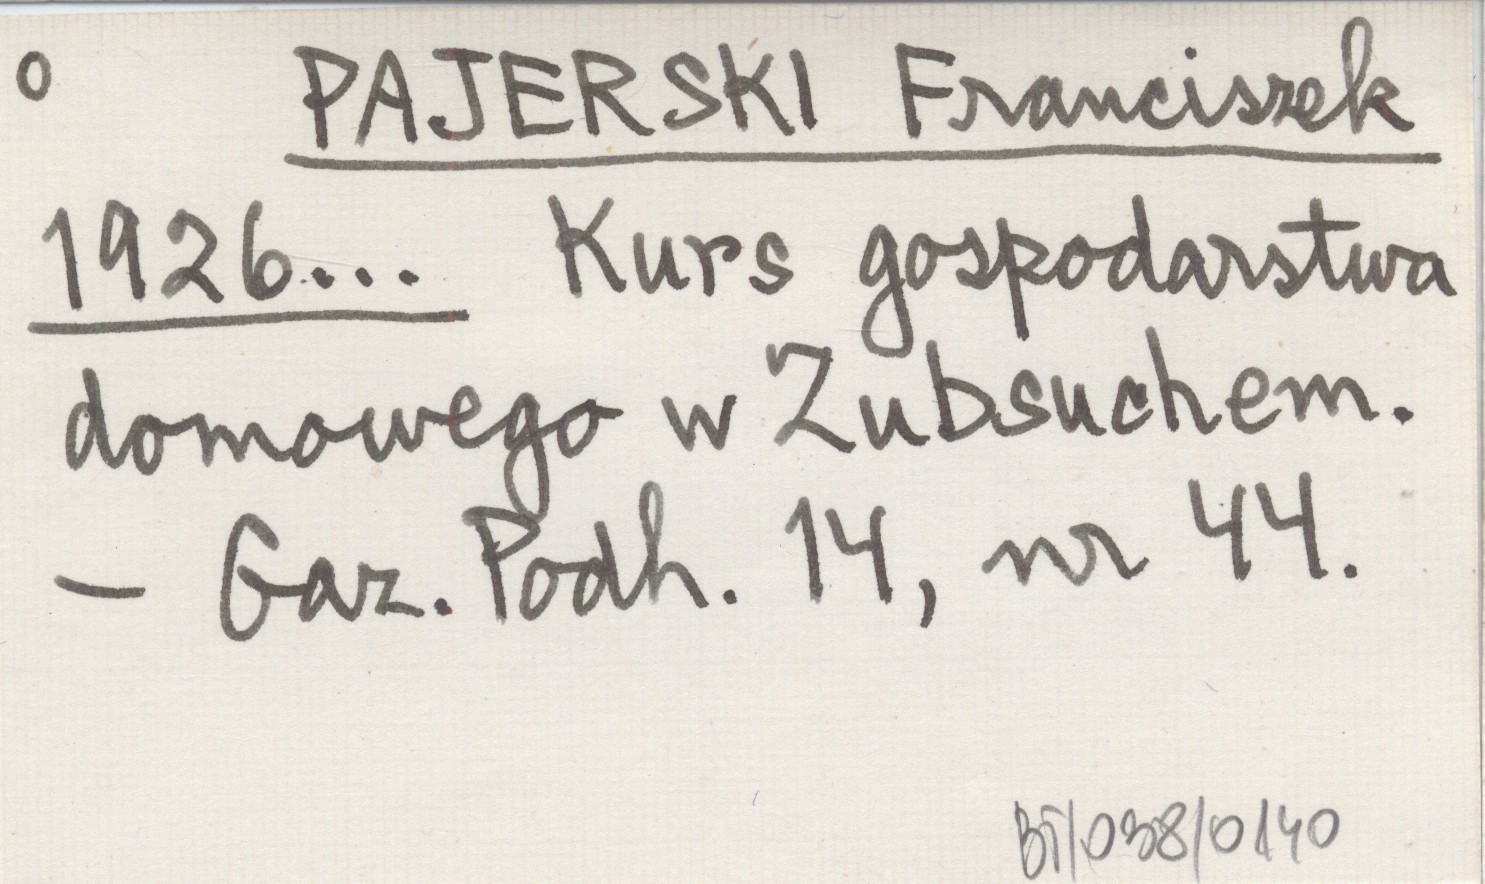 o PAJERSKI Franciszek
1926... Kurs gospodarstwa
domowego w Zubsuchem.
– Gaz. Podh. 14, nr 44.
BT/038/0140